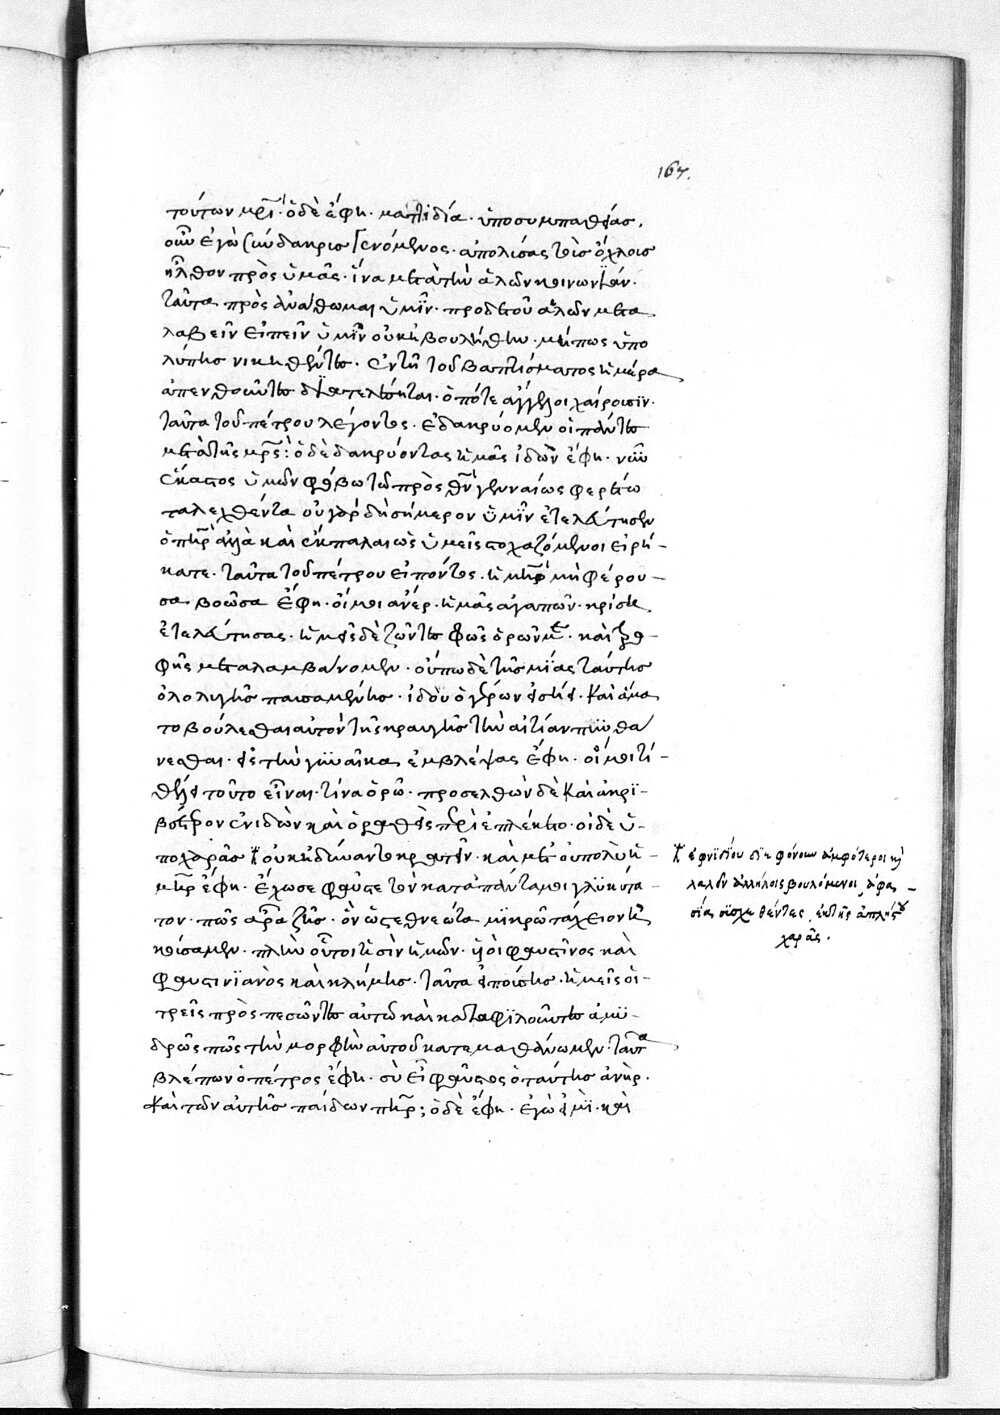 167.
τούτων μρί· ὁ δὲ ἔφη· ματιδία· ὑπὸ συμπαθείας,
οὖν ἐγὼ σύνδακρυς γενόμενος· ἀπολύσας τοὺς ὄχλους
ἦλθον πρὸς ὑμᾶς· ἵνα μετὰ τὴν ἁλῶν κοινωνίαν·
ταῦτα πρὸς ἀναθωμαι ὑμῖν· πρὸ δὲ τοῦ ἁλῶν μετα
λαβεῖν εἰπεῖν ὑμῖν οὐκ ἠβουλήθην· μήπως ὑπὸ
λύπης νικηθέντες· ἐν τῇ τοῦ βαπτίσματος ἡμέρα
ἀπενθοῦντες διατελῆται· ὁπότε ἄγγελοι χαίρουσιν·
ταῦτα τοῦ πέτρου λέγοντος· ἐδακρύομεν οἱ πάντες
μετὰ τῆς μρς: ὁ δὲ δακρύοντας ἡμᾶς ἰδὼν ἔφη· νῦν
ἕκαστος ὑμῶν φόβω τῶ πρὸς θν γενναίως φερέτω
τα λεχθέντα οὐ γὰρ δὴ σήμερον ὑμῖν ἐτελεύτησεν
ὁ πηρ ἀλλὰ καὶ ἔκπαλαι ὡς ὑμεῖς στοχαζόμενοι εἰρή-
κατε· ταῦτα τοῦ πέτρου εἰπόντος· ἡ μηρ μὴ φέρου-
σα βοῶσα ἔφη· οἴμοι ἄνερ· ἡμᾶς ἀγαπῶν· κρίσει
ἐτελεύτησας· ἡμεῖς δὲ ζῶντες φῶς ὁρῶμεν· καὶ τρο-
φῆς μεταλαμβάνομεν· οὔπω δὲ τῆς μιᾶς ταύτης
ὀλολυγῆς παυσαμένης· ἰδοὺ ὁ γέρων εἴσεισι· καὶ ἅμα
το βούλεσθαι αὐτὸν τῆς κραυγῆς τὴν αἰτίαν πυνθά
νεσθαι· εἰς τὴν γυναῖκα ἐμβλέψας ἔφη· οἴμοι τί-
θέλει τοῦτο εἶναι· τίνα ὁρῶ· προσελθὼν δὲ καὶ ἀκρι-
βέστερον ἐνιδὼν καὶ ὁραθεὶς περιεπλέκετο· οἱ δὲ ὑ-
πο χαρᾶς ⁒ οὐκ ἠδύναντο κρατεῖν· καὶ μετ' οὐ πολὺ ἡ
μηρ ἔφη· ἔχω σε φαῦστε τὸν κατὰ πάντα μοι γλυκύτα-
τον· πῶς ἆρα ζῆς· ὃν ὡς τεθνεῶτα μικρῷ τάχειον ἠ-
κούσαμεν· πλὴν οὗτοι εἰσὶν ἡμῶν· υἱοὶ φαυστῖνος καὶ
φαυστινϊανὸς καὶ κλήμης· ταῦτα εἰπούσης· ἡμεῖς οἱ-
τρεῖς πρὸς πεσόντες αὐτῶ καὶ καταφιλοῦντες ἀμυ-
δρῶς πῶς τὴν μορφὴν αὐτοῦ κατεμανθάνωμεν· ταῦτα
βλέπων ὁ πέτρος ἔφη· σὺ εἶ φαῦστος ὁ ταύτης ἀνὴρ·
καὶ τῶν αὐτῆς παίδων πηρ; ὁ δὲ ἔφη· ἐγώ εἰμϊ· καὶ
⁒ ἐφνιδίου ἀμφότεροι καὶ
λαλεῖν ἀλλήλοις βουλόμενοι, ἀφα-
σία συσχεθέντες, ἐκ τῆς ἀπλήστου
χαρᾶς.